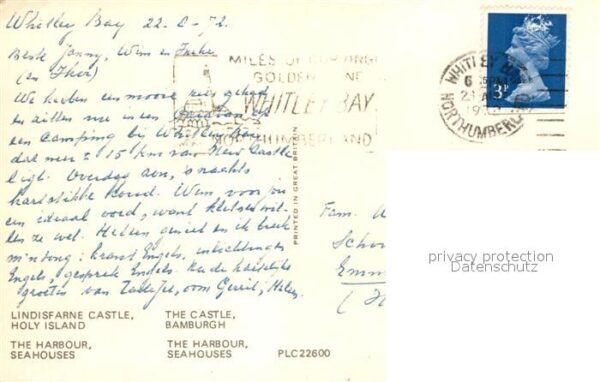 Whitley Bay 22-8-72.
Beste Jonny, Wim en Ineke
(en Thea)
We hebben een mooie reis gehad
en zitten nu in een
een camping bij Whitley Bay
dat met ± 15 km van New Castle
ligt. Overdag zon, 's nachts
hartstikke koud. Wim voor jou
een ideaal oord, want kletsen wil-
len ze wel. Heleen geniet en ik breek
m'n tong: krant Engels, inlichtingen
Engels, gesprek Engels. de hartelijke
groeten van Gerrit, Heleen
MILES OF
GOLDEN
WHITLEY BAY
NORTHUMBERLAND
WHITLEY BAY
6
NORTHUMBERLAND
3P
PRINTED IN GREAT BRITAIN
Fam.
Scho
Emm
privacy protection
Datenschutz
LINDISFARNE CASTLE,
HOLY ISLAND
THE CASTLE,
BAMBURGH
THE HARBOUR,
SEAHOUSES
THE HARBOUR,
SEAHOUSES
PLC22600